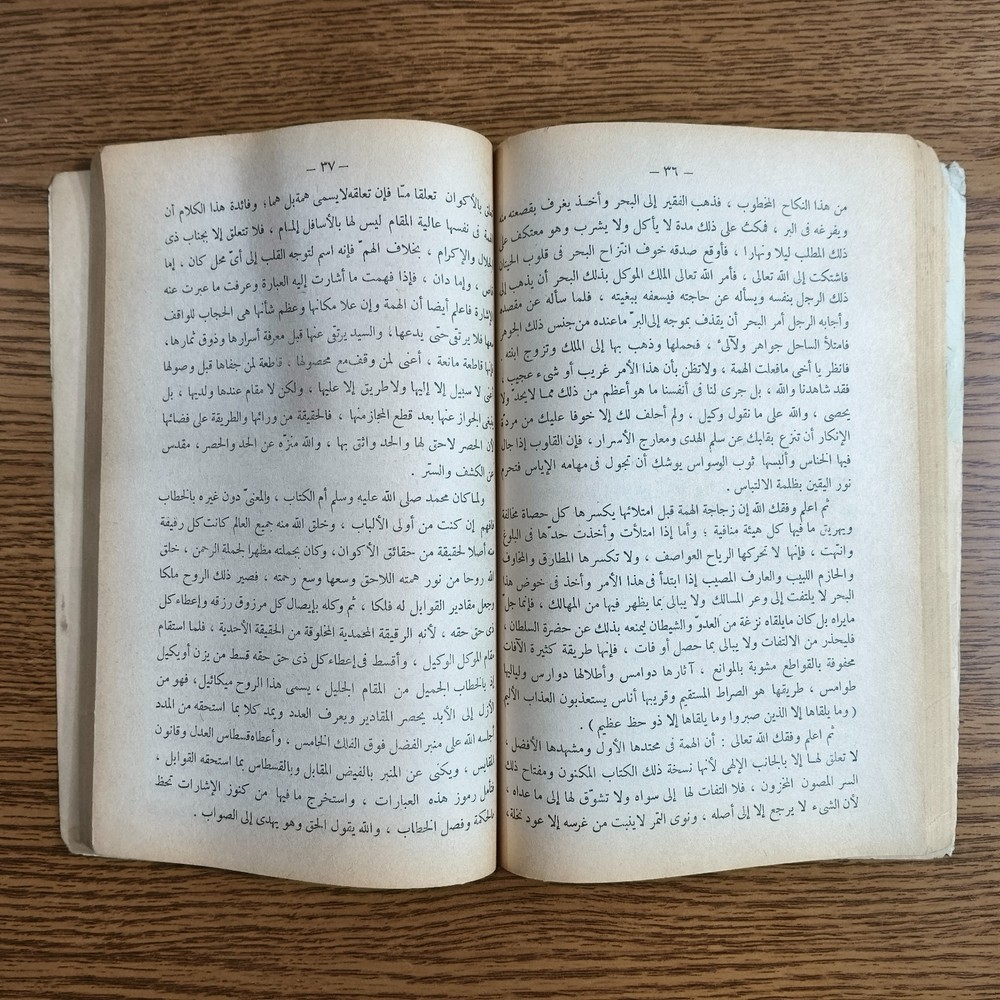 — ٣٦ —
من هذا النكاح المخطوب ، فذهب الفقير إلى البحر وأخذ يغرف بقصعته
ويفرغه فى البر ، فمكث على ذلك مدة لا يأكل ولا يشرب وهو معتكف على
ذلك المطلب ليلا ونهارا ، فأوقع صدقه خوف انتزاح البحر فى قلوب الحيتان
فاشتكت إلى الله تعالى ، فأمر الله تعالى الملك الموكل بذلك البحر أن يذهب إلى
ذلك الرجل بنفسه ويسأله عن حاجته فيسعفه ببغيته ، فلما سأله عن مقصده
وأجابه الرجل أمر البحر أن يقذف بموجه إلى البرّ ما عنده من جنس ذلك الجوهر
فامتلأ الساحل جواهر ولآلئ ، فحملها وذهب بها إلى الملك وتزوج ابنته .
فانظر يا أخى مافعلت الهمة ، ولاتظن بأن هذا الأمر غريب أو شىء عجيب ،
فقد شاهدنا والله ، بل جرى لنا فى أنفسنا ما هو أعظم من ذلك مما لا يحدّ ولا
يحصى ، والله على ما نقول وكيل ، ولم أحلف لك إلا خوفا عليك من مردة
الإنكار أن تنزع بقلبك عن سلم الهدى ومعارج الأسرار ، فإن القلوب إذا جال
فيها الخناس وألبسها ثوب الوسواس يوشك أن تجول فى مهامه الإياس فتحرم
نور اليقين بظلمة الالتباس .
ثم اعلم وفقك الله إن زجاجة الهمة قبل امتلائها يكسرها كل حصاة مخالفة
ويهريق ما فيها كل هيئة منافية ؛ وأما إذا امتلأت وأخذت حدّها فى البلوغ
وانتهت ، فإنها لا تحركها الرياح العواصف ، ولا تكسرها المطارق والمخاوف
والحازم اللبيب والعارف المصيب إذا ابتدأ فى هذا الأمر وأخذ فى خوض هذا
البحر لا يلتفت إلى وعر المسالك ولا يبالى بما يظهر فيها من المهالك ، فإنما جلّ
مايراه بل كان مايلقاه نزغة من العدوّ والشيطان ليمنعه بذلك عن حضرة السلطان ،
فليحذر من الالتفات ولا يبالى بما حصل أو فات ، فإنها طريقة كثيرة الآفات
محفوفة بالقواطع مشوبة بالموانع ، آثارها دوامس وأطلالها دوارس ولياليها
طوامس ، طريقها هو الصراط المستقيم وقريبها أناس يستعذبون العذاب الأليم
( وما يلقاها إلا الذين صبروا وما يلقاها إلا ذو حظ عظيم ) .
ثم اعلم وفقك الله تعالى : أن الهمة فى محتدها الأول ومشهدها الأفضل ،
لا تعلق لها إلا بالجانب الإلهى لأنها نسخة ذلك الكتاب المكنون ومفتاح ذلك
السر المصون المخزون ، فلا التفات لها إلى سواه ولا تشوّق لها إلى ما عداه ،
لأن الشىء لا يرجع إلا إلى أصله ، ونوى التمر لا ينبت من غرسه إلا عود نخلة ،
— ٣٧ —
بالأكوان تعلقا منّا فإن تعلقه لا يسمى همة بل هما ؛ وفائدة هذا الكلام أن
فى نفسها عالية المقام ليس لها بالأسافل إلمام ، فلا تتعلق إلا بجناب ذى
الجلال والإكرام ، بخلاف الهمّ فإنه اسم لتوجه القلب إلى أىّ محل كان . إما
وإما دان ، فإذا فهمت ما أشارت إليه العبارة وعرفت ما عبرت عنه
الإشارة فاعلم أيضا أن الهمة وإن علا مكانها وعظم شأنها هى الحجاب للواقف
معها فلا يرتقى حتى يدعها ، والسيد يرتقى عنها قبل معرفة أسرارها وذوق ثمارها ،
فإنها قاطعة مانعة ، أعنى لمن وقف مع محصولها . قاطعة لمن جفاها قبل وصولها
أعنى لا سبيل إلا إليها ولا طريق إلا عليها ، ولكن لا مقام عندها ولديها ، بل
ينبغى الجواز عنها بعد قطع المجاز منها ، فالحقيقة من ورائها والطريقة على فضائها
لأن الحصر لاحق لها والحد واثق بها ، والله منزّه عن الحد والحصر ، مقدس
عن الكشف والستر .
ولما كان محمد صلى الله عليه وسلم أم الكتاب ، والمعنىّ دون غيره بالخطاب
فافهم إن كنت من أولى الألباب ، وخلق الله منه جميع العالم كانت كل رقيقة
منه أصلا لحقيقة من حقائق الأكوان ، وكان بجملته مظهرا لجملة الرحمن ، خلق
الله روحا من نور همته اللاحق وسعها وسع رحمته ، فصير ذلك الروح ملكا
وجعل مقادير القوابل له فلكا ، ثم وكله بإيصال كل مرزوق رزقه وإعطاء كل
ذى حق حقه ، لأنه الرقيقة المحمدية المخلوقة من الحقيقة الأحدية ، فلما استقام
مقام الموكل الوكيل ، وأقسط فى إعطاء كل ذى حق حقه قسط من يزن أو يكيل
إذ بالخطاب الجميل من المقام الجليل ، يسمى هذا الروح ميكائيل ، فهو من
الأزل إلى الأبد يحصر المقادير ويعرف العدد ويمد كلا بما استحقه من المدد
أجلسه الله على منبر الفضل فوق الفلك الخامس ، وأعطاه قسطاس العدل وقانون
المقايس ، ويكنى عن المنبر بالفيض المقابل وبالقسطاس بما استحقه القوابل ،
فتأمل رموز هذه العبارات ، واستخرج ما فيها من كنوز الإشارات تحظ
بالحكمة وفصل الخطاب ، والله يقول الحق وهو يهدى إلى الصواب .